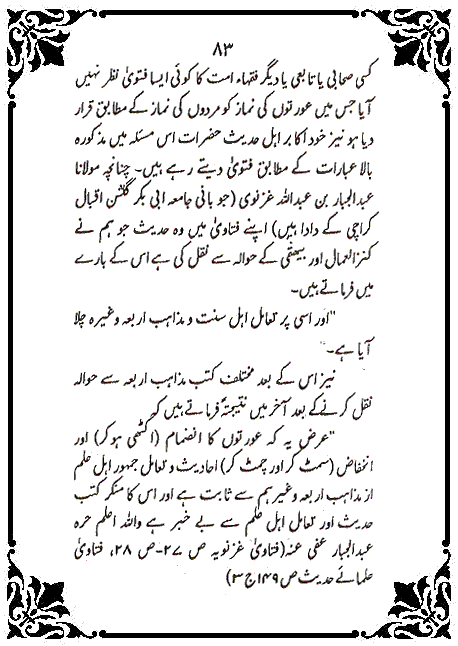 ۸۳
کسی صحابی یا تابعی یا دیگر فقہاء امت کا کوئی ایسا فتویٰ نظر نہیں
آیا جس میں عورتوں کی نماز کو مردوں کی نماز کے مطابق قرار
دیا ہو نیز خود اکابر اہل حدیث حضرات اس مسئلہ میں مذکورہ
بالا عبارات کے مطابق فتویٰ دیتے رہے ہیں۔ چنانچہ مولانا
عبدالجبار بن عبداللہ غزنوی (جو بانی جامعہ ابی بکر گلشن اقبال
کراچی کے دادا ہیں) اپنے فتاویٰ میں وہ حدیث جو ہم نے
کنزالعمال اور بیہقی کے حوالہ سے نقل کی ہے اس کے بارے
میں فرماتے ہیں۔
"اور اسی پر تعامل اہل سنت و مذاہب اربعہ وغیرہ چلا
آیا ہے۔"
نیز اس کے بعد مختلف کتب مذاہب اربعہ سے حوالہ
نقل کرنے کے بعد آخر میں نتیجتہً فرماتے ہیں کہ
"غرض یہ کہ عورتوں کا انضمام (اکٹھی ہو کر) اور
انخفاض (سمٹ کر اور چمٹ کر) احادیث و تعامل جمہور اہل علم
از مذاہب اربعہ وغیرہم سے ثابت ہے اور اس کا منکر کتب
حدیث اور تعامل اہل علم سے بے خبر ہے واللہ اعلم حرہ
عبدالجبار عفی عنہ (فتاویٰ غزنویہ ص ۲۷-ص ۲۸، فتاویٰ
علمائے حدیث ص ۱۴۹ ج ۳)